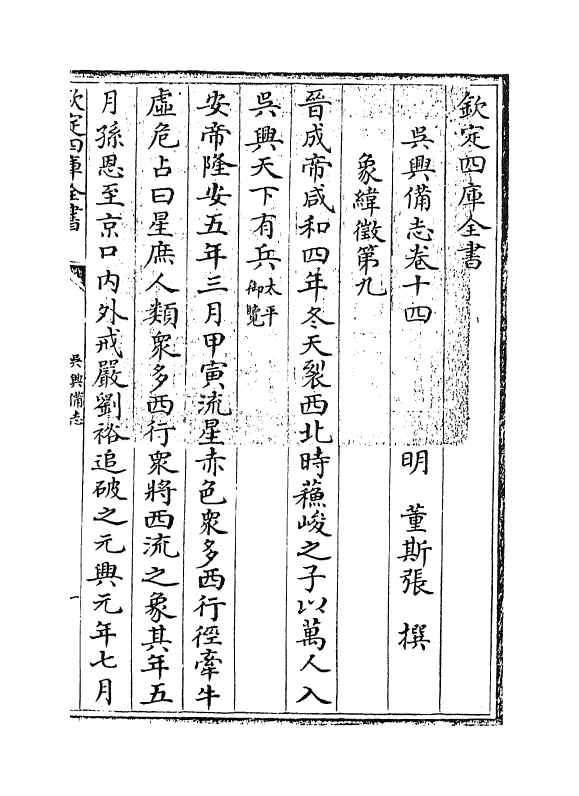 欽定四庫全書
吳興備志卷十四
明 董斯張 撰
象緯徵第九
晉成帝咸和四年冬天裂西北時蘓峻之子以萬人入
吳興天下有兵太平御覽
安帝隆安五年三月甲寅流星赤色衆多西行徑牽牛
虛危占曰星庶人類衆多西行衆將西流之象其年五
月孫恩至京口内外戒嚴劉裕追破之元興元年七月
欽定四庫全書
吳興備志
一